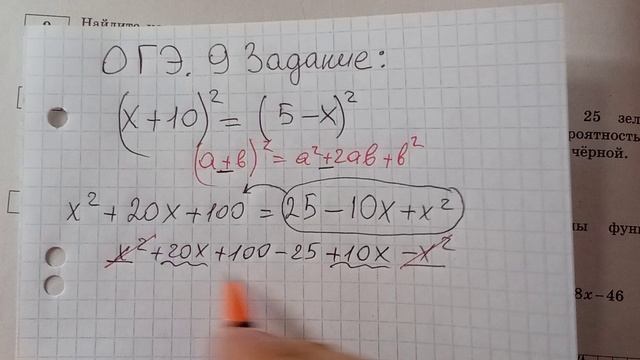 Найдите
ОГЭ. 9 Задание:
(x+10)² = (5-x)²
(a+b)² = a²+2ab+b²
x²+20x+100 = 25-10x+x²
x²+20x+100-25+10x-x²
25 зел
роятность
чёрной.
функ
8x-46